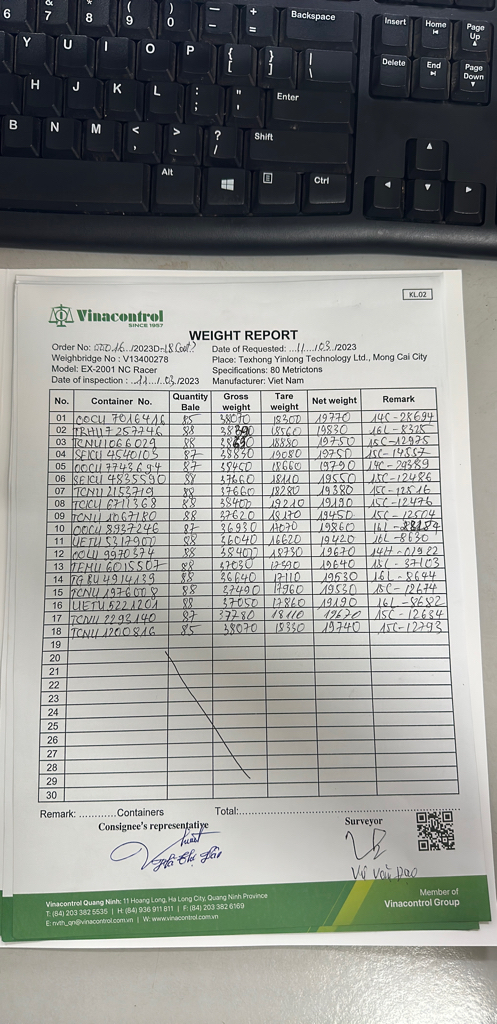 6 & 7 * 8 ( 9 ) 0 - + = Backspace Insert Home Page Up
Y U I O P { [ } ] | \ Delete End Page Down
H J K L : ; " ' Enter
B N M < , > . ? Shift
Alt Ctrl
KL.02
Vinacontrol
SINCE 1957
WEIGHT REPORT
Order No: /2023D Date of Requested: 11/03/2023
Weighbridge No : V13400278 Place: Texhong Yinlong Technology Ltd., Mong Cai City
Model: EX-2001 NC Racer Specifications: 80 Metrictons
Date of inspection: 11/03/2023 Manufacturer: Viet Nam
No. Container No. Quantity Bale Gross weight Tare weight Net weight Remark
01 OOCU 7016416 85 38070 18300 19770 14C-28694
02 88 18560 19830 16L-8325
03 TCNU1066029 88 18880 19750 15C-12975
04 SEICU 4540103 87 38830 19080 19750 15C-14557
05 OOCU 7743694 87 38450 18660 19790 14C-29389
06 SEICU 4835590 88 37660 18110 19550 15C-12486
07 TCNU 2153719 88 37660 18280 19380 15C-12516
08 6711368 88 38400 19210 19190 15C-12476
09 TCNU 1067180 88 37620 18170 19450 15C-12504
10 OOCU 8937246 87 36930 19860 16L-
11 UETU 5317900 88 36040 16620 19420 16L-8630
12 9970374 88 38400 18730 19670 14H-01982
13 TEMU 6015507 88 37030 19640 15C-37103
14 TGBU 4914139 88 36640 17110 19530 16L-8644
15 TCNU 1976008 88 37490 17960 19530 15C-12674
16 UETU 5221201 88 37050 17860 19190 16L-8682
17 TCNU 2293140 87 37780 18110 19670 15C-12634
18 TCNU 1200816 85 38070 18330 19740 15C-12793
19
20
21
22
23
24
25
26
27
28
29
30
Remark: ............Containers Total:....................
Consignee's representative Surveyor
Vũ Văn Đạo
Vinacontrol Quang Ninh: 11 Hoang Long, Ha Long City, Quang Ninh Province
T: (84) 203 382 5535 | H: (84) 936 911 811 | F: (84) 203 382 6169
E: nvth_qn@vinacontrol.com.vn | W: www.vinacontrol.com.vn
Member of
Vinacontrol Group